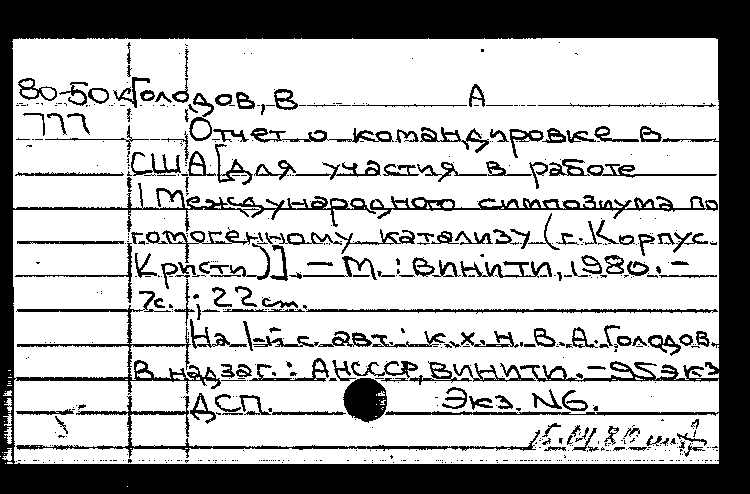 80-50к Голодов, В А
777 Отчет о командировке в
США [для участия в работе
I Международного симпозиума по
гомогенному катализу (г. Корпус
Кристи)]. – М. : ВИНИТИ, 1980. –
7с. ; 22 см.
На 1-й с. авт.: к.х.н. В.А. Голодов.
В надзаг.: АН СССР, ВИНИТИ. – 95 экз
ДСП. Экз. N6.
15.04.80